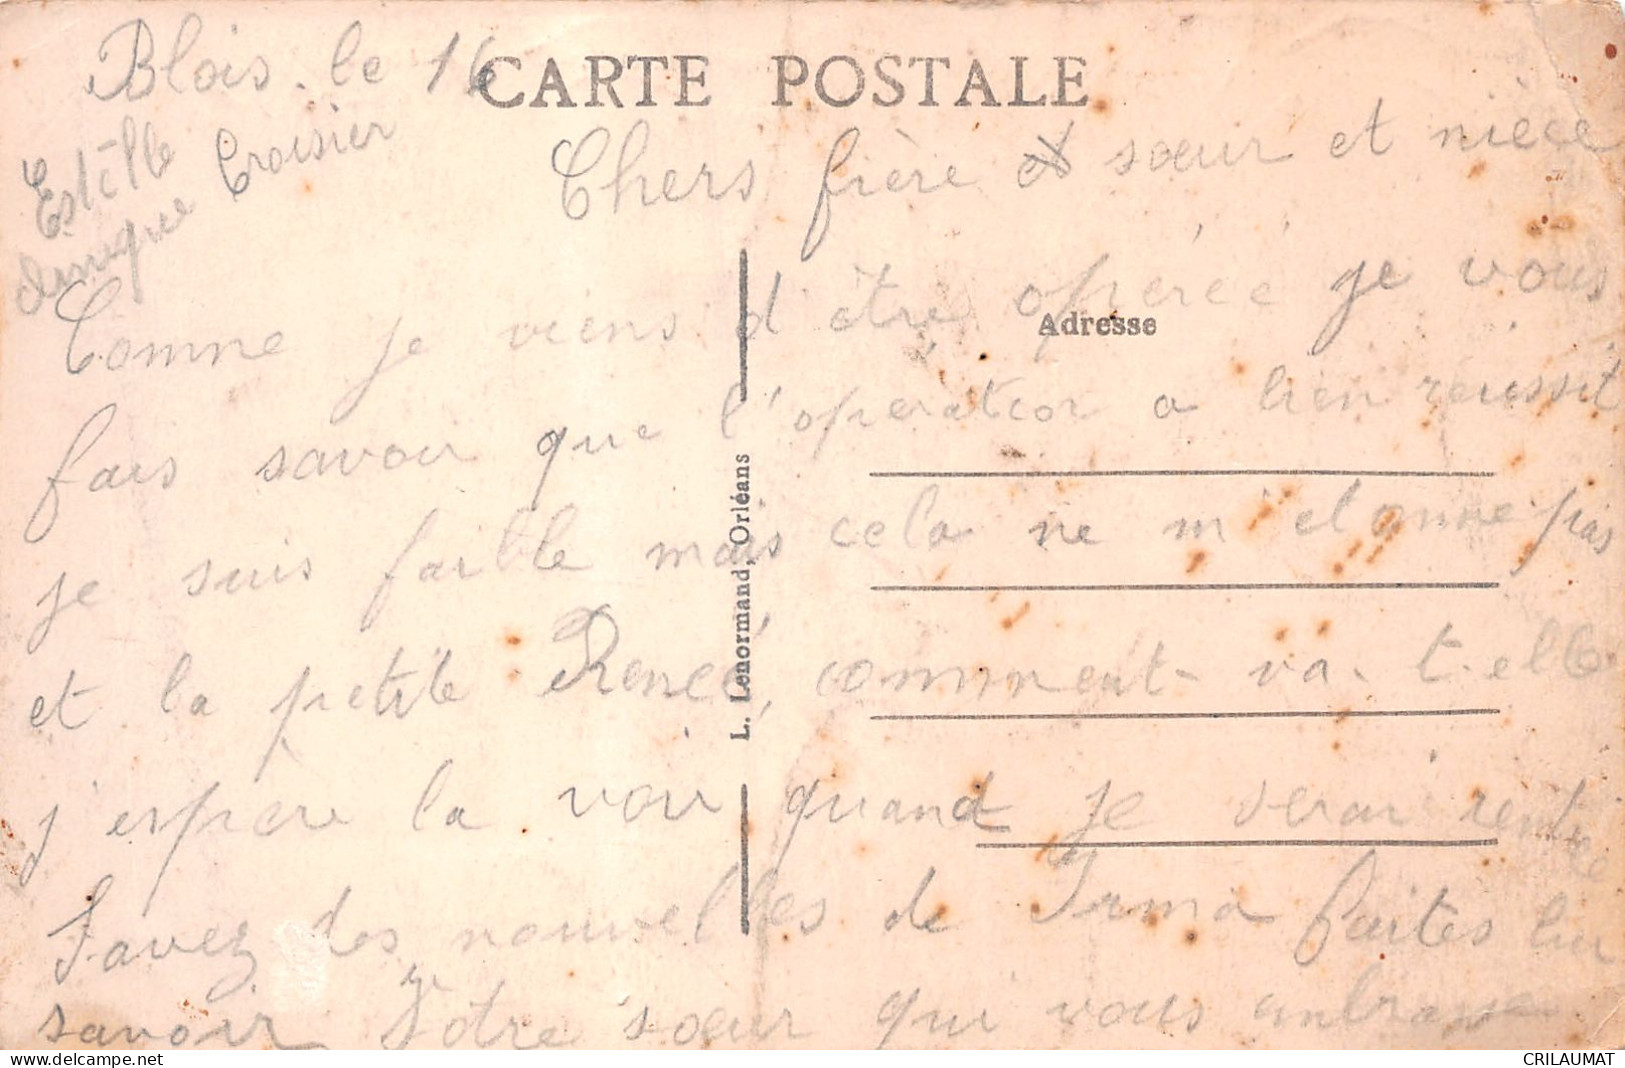 Blois. le 16
CARTE POSTALE
Estelle
Croisier
Chers frère et sœur et nièce
Comme je viens d'être opérée je vous
Adresse
fais savoir que l'operation a bien réussit
je suis faible mais cela ne m'etonne pas
L. Lenormand, Orléans
et la petite Renée, comment-va-t-elle
j'espere la voir quand je serai rentree
Savez des nouvelles de Irma faites lui
savoir Votre sœur qui vous embrasse
CRILAUMAT